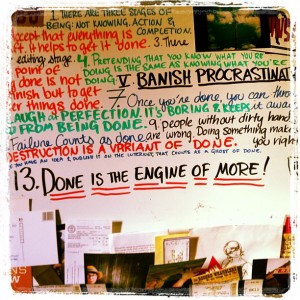 1. THERE ARE THREE STAGES OF
BEING: NOT KNOWING, ACTION &
COMPLETION.
ccept that everything is
it helps to get it done. 3. There
editing stage. 4. PRETENDING THAT YOU KNOW WHAT YOU'RE
DOING IS THE SAME AS KNOWING WHAT YOU'RE
point of
done is not
V. BANISH PROCRASTINAT
nish but to get
er things done.
7. Once you're done, you can throw
it away
LAUGH at PERFECTION. IT'S BORING & KEEPS
U FROM BEING DONE. 9. people without dirty hand
are wrong. Doing something make
you right
Failure Counts as done.
DESTRUCTION IS A VARIANT OF DONE.
YOU HAVE AN IDEA & PUBLISH IT ON THE INTERNET, THAT COUNTS AS A GHOST OF DONE.
13. DONE IS THE ENGINE OF MORE!